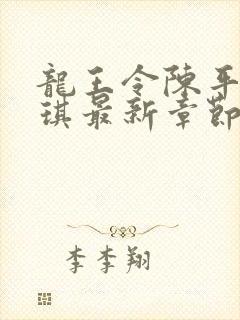 龍王令陳平
琪最新章節
李李翔